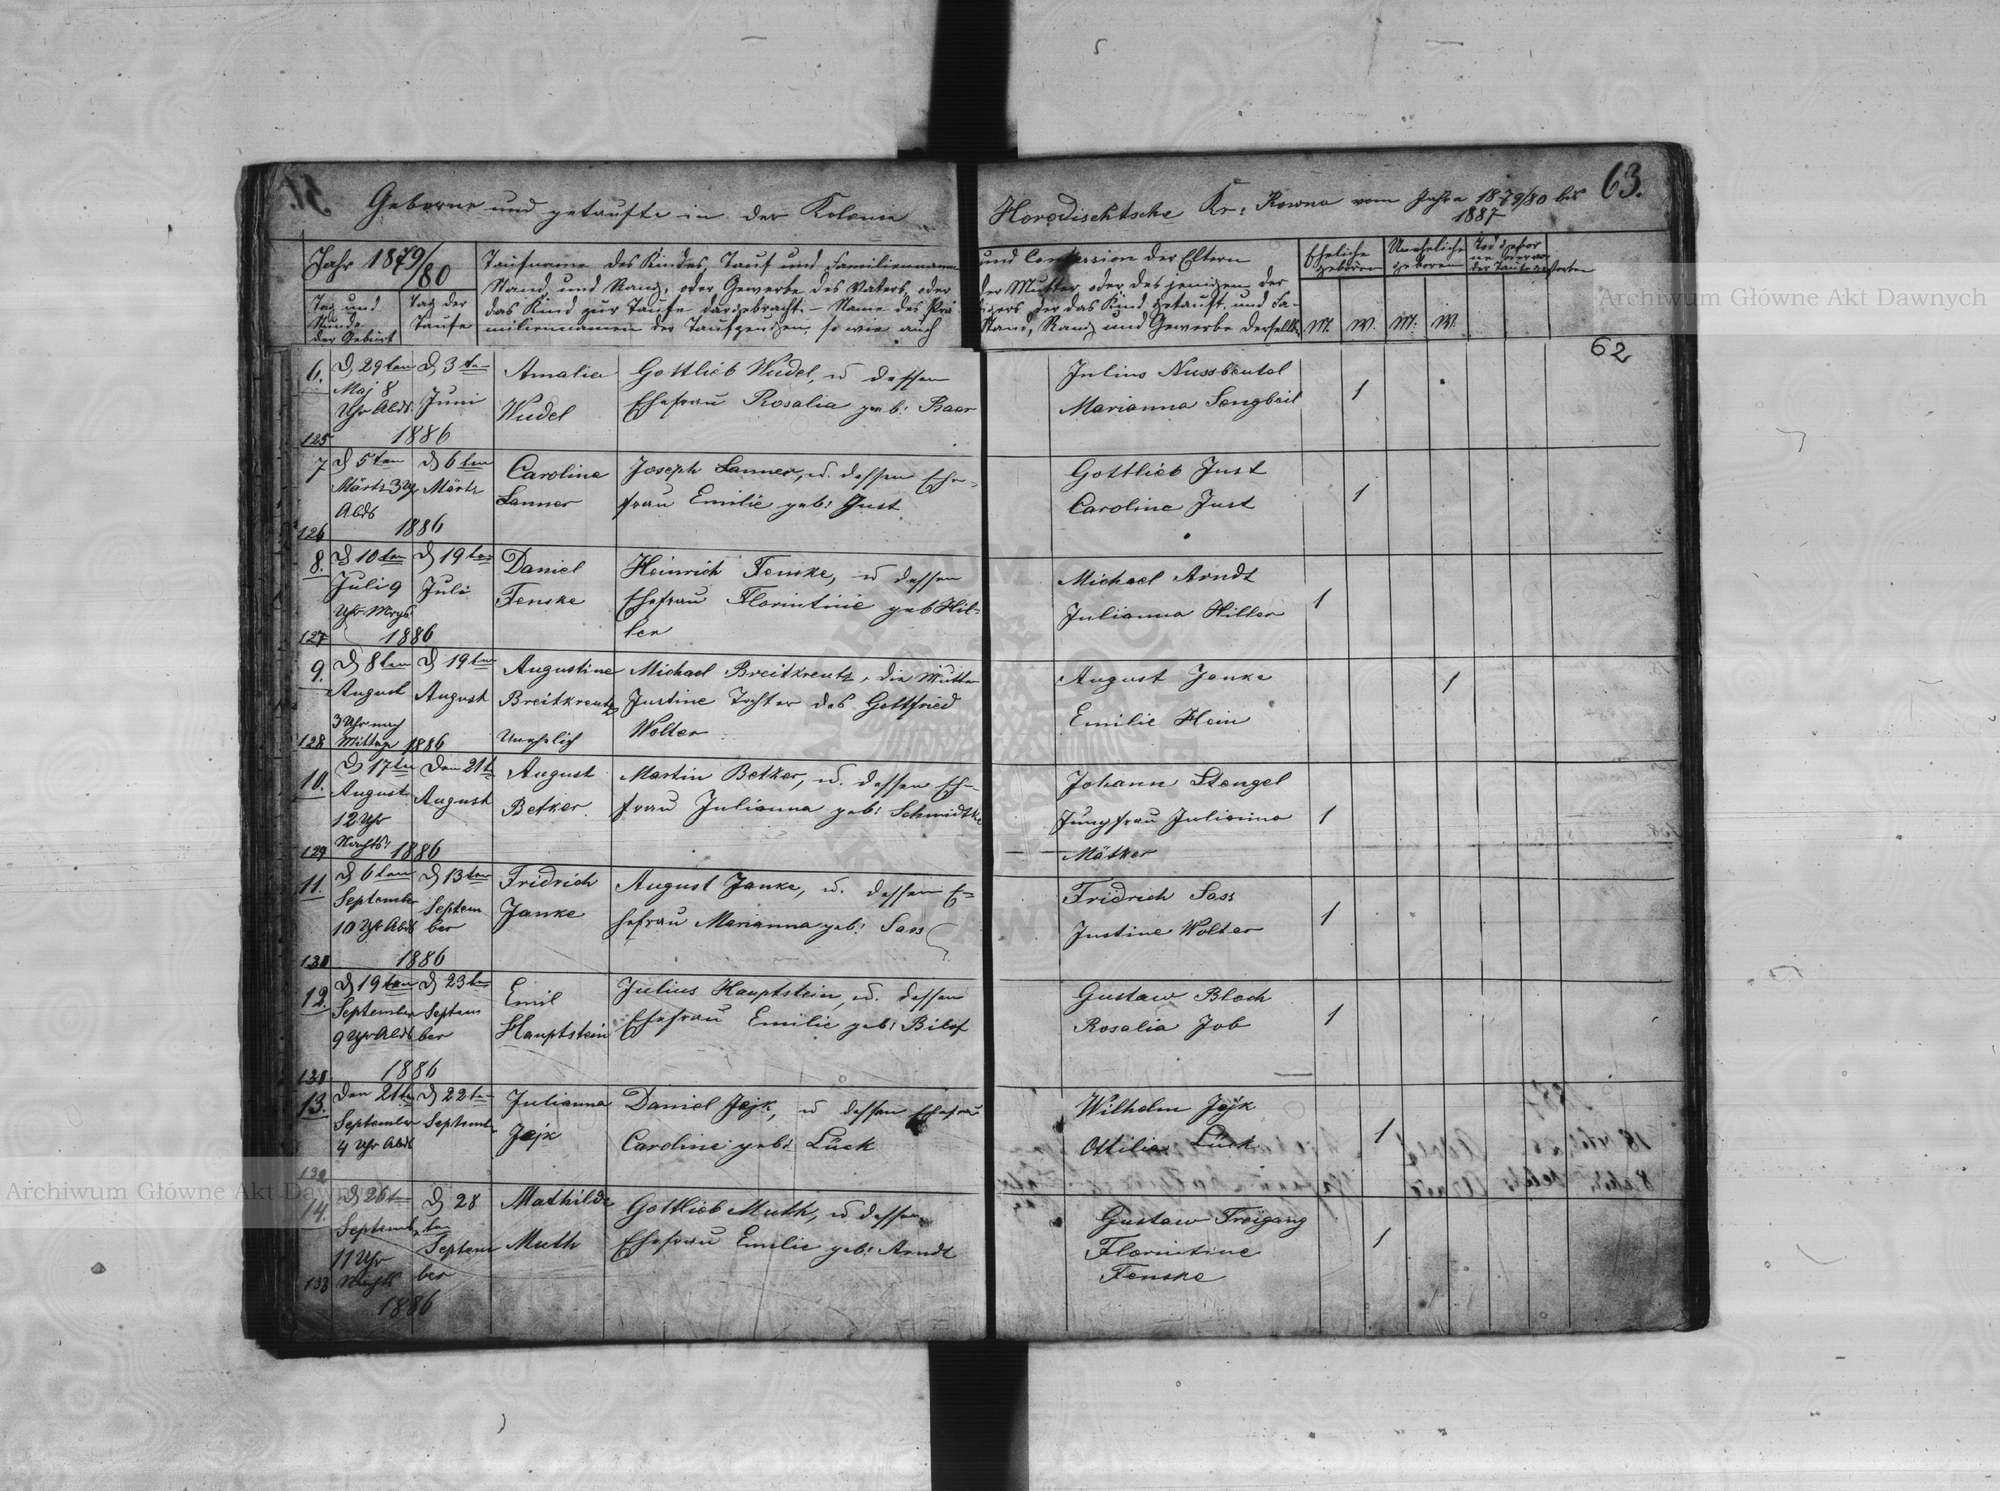 Geborne und getaufte in der Kolonie Horodischtsche Kr: Rowno vom Jahre 1879/80 bis 1887
63.
62
Jahr 1879/80
Tag und Stunde der Geburt
Tag der Taufe
Taufname des Kindes, Tauf und Familienname
Stand und Rang, oder Gewerbe des Vaters, oder
das Kind zur Taufe dargebracht – Name des Pre
miliennamen der Taufzeugen, so wie auch
und Confession der Eltern
der Mutter oder des jenigen der
digers der das Kind getauft und Fa-
Stand, Rang und Gewerbe derselben
Eheliche geboren
Uneheliche geboren
M. W. M. W.
6. D 29ten D 3te
Maj 8 Juni
Uhr Abds.
125 1886
Amalie
Wudel
Gottlieb Wudel, u dessen
Ehefrau Rosalia geb: Baar
Julius Nussbeutel
Marianna Sengbeil
1
7 D 5ten D 6ten
März 3 U. März
Abds
126 1886
Caroline
Lanner
Joseph Lanner, u. dessen Ehe-
frau Emilie geb: Just
Gottlieb Just
Caroline Just
1
8. D 10ten D 19ten
Juli 9 Juli
Uhr Morgs
127 1886
Daniel
Fenske
Heinrich Fenske, u dessen
Ehefrau Florintine geb Hil-
ler
Michael Arndt
Julianna Hiller
1
9. D 8ten D 19ten
August August
3 Uhr nach
128 Mittag 1886
Augustine
Breitkreutz
Unehlich
Michael Breitkreutz, die Mutter
Justine Tochter des Gottfried
Wolter
August Janke
Emilie Hein
1
10. D 17ten Den 21t
August August
12 Uhr
129 Nachts 1886
August
Betker.
Martin Betker, u. dessen Eh-
frau Julianna geb: Schmidtke
Johann Stengel
Jungfrau Julianna
Mätker
1
11. D 6ten D 13ten
September Septem
10 Uhr Abds ber
130 1886
Fridrich
Janke
August Janke, u. dessen E-
hefrau Marianna geb: Sass
Fridrich Sass
Justine Wolter
1
12. D 19ten D 23te
September Septem
9 Uhr Abds ber
131 1886
Emil
Hauptstein
Julius Hauptstein, u. dessen
Ehefrau Emilie geb:
Gustaw Bloch
Rosalia Job
1
13. Den 21ten D 22te
September Septemb
4 Uhr Abds
132
Julianna
Jejk
Daniel Jejk, u dessen Ehefrau
Caroline geb: Lück
Wilhelm Jejk
Ottilie Lück
1
14. D 26te D 28
Septemb ten
11 Uhr Septem
133 Nachts ber
1886
Mathilde
Muth
Gottlieb Muth, u dessen
Ehefrau Emilie geb: Arndt
Gustaw Freigang
Florintine
Fenske
1
Archiwum Główne Akt Dawnych
Archiwum Główne Akt Dawnych